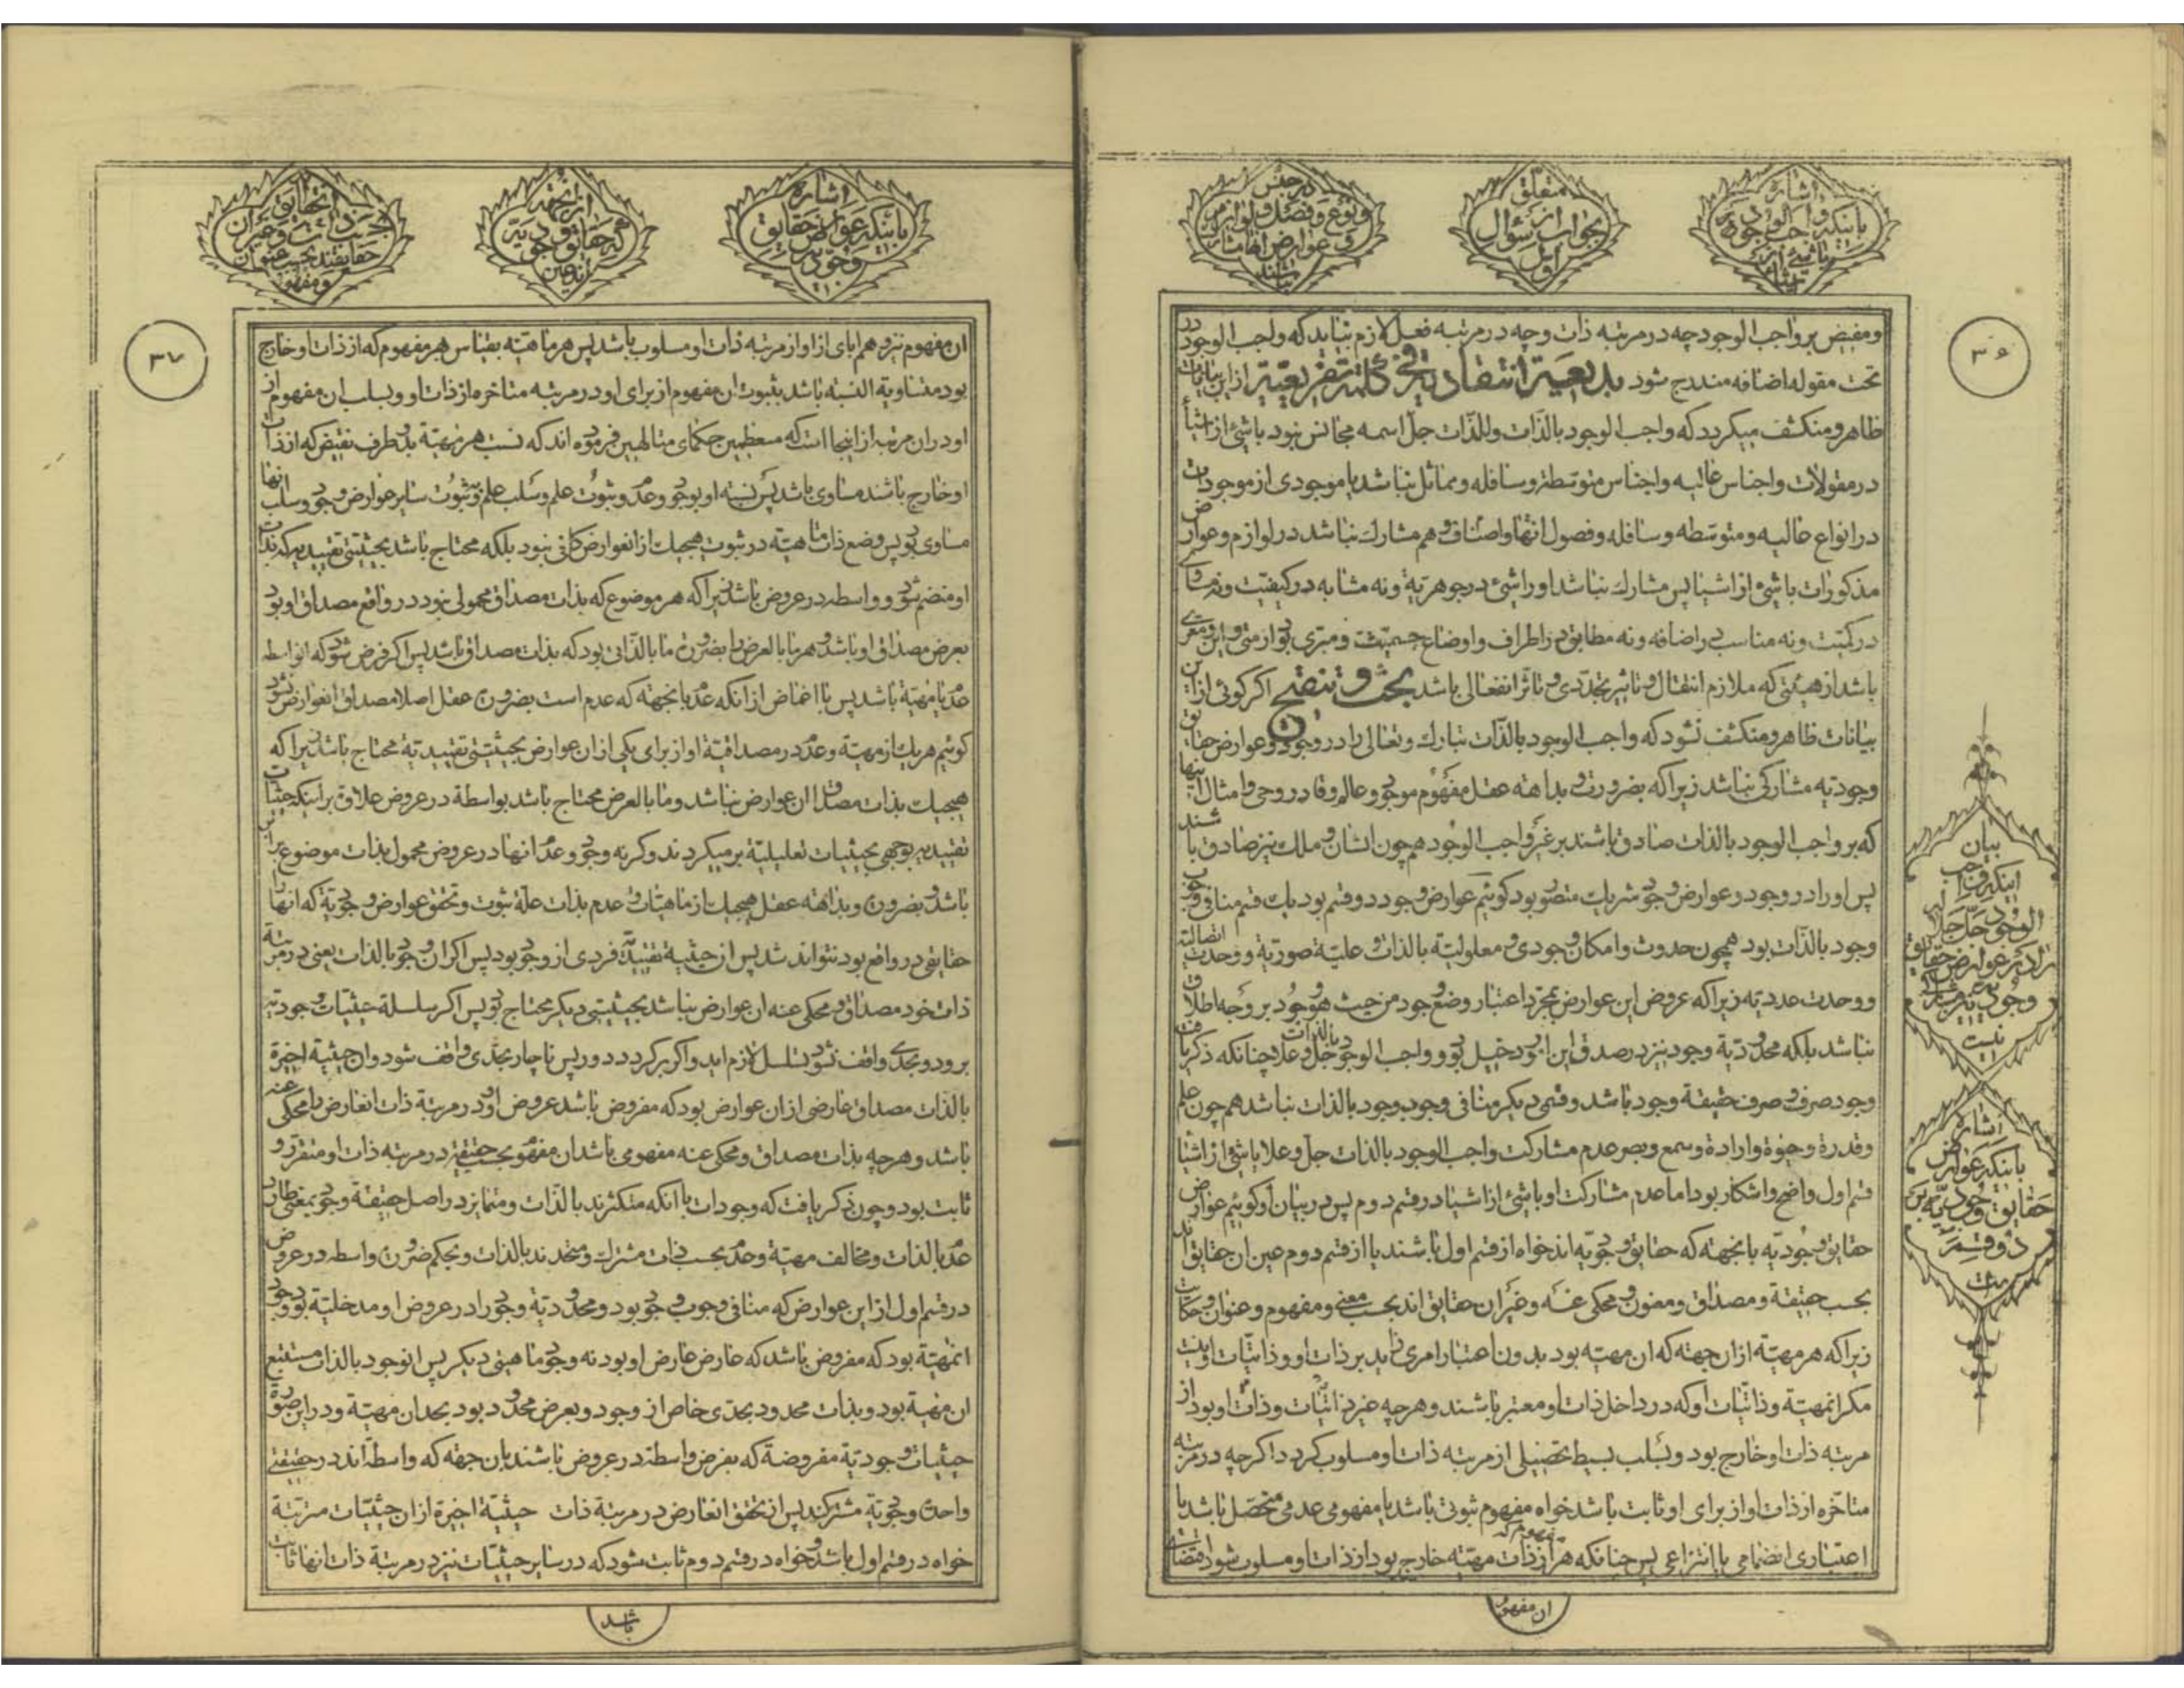 اشاره
باینکه واجب الوجود
متعلق
بجواب از سؤال
اول
در جنس
و نوع و فصل و لوازم
و عوارض
۳۶
و مفیض بر واجب الوجود چه در مرتبه ذات و چه در مرتبه فعل لازم نیاید که واجب الوجود در
تحت مقوله اضافه مندرج شود بدیعیة انتقادیة فی نکتة تفریعیة از این بیانات
ظاهر و منکشف میگردد که واجب الوجود بالذات وللذات جل اسمه مجانس نبود با شئ از اشیا
در مقولات و اجناس عالیه و اجناس متوسطه و سافله و مماثل نباشد با موجودی از موجودات
در انواع عالیه و متوسطه و سافله و فصول انها و اصناف و هم مشارك نباشد در لوازم و عوارض
مذکورات با شئ از اشیا پس مشارك نباشد او را شئ در جوهریة و نه مشابه در کیفیت و نه مساوی
در کمیت و نه مناسب در اضافه و نه مطابق در اطراف و اوضاع جسمیت و مبری بود از متی و این و معری
باشد از هیئتی که ملازم انتقال و تاثیر تجددی و تاثر انفعالی باشد بحث و تنقیح اکر کوئی از این
بیانات ظاهر و منکشف نشود که واجب الوجود بالذات تبارك و تعالی را در وجود و عوارض حقایق
وجودیه مشارکی نباشد زیرا که بضرورت و بداهته عقل مفهوم موجود و عالم و قادر و حی و امثال اینها
که بر واجب الوجود بالذات صادق باشند بر غیر واجب الوجود همچون انسان و ملك نیز صادق باشند
پس او را در وجود و عوارض وجود شریك متصور بود کوئیم عوارض وجود دو قسم بود یك قسم منافی وجوب
وجود بالذات بود همچون حدوث و امکان وجودی و معلولیة بالذات و علیة صوریة و وحدت اتصالیة
و وحدت عددیه زیرا که عروض این عوارض بمجرد اعتبار وضع وجود من حیث هو وجود بر وجه اطلاق
نباشد بلکه محدودیة وجود نیز در صدق این امور دخیل بود و واجب الوجود بالذات جل و علا چنانکه ذکر یافت
وجود صرف و صرف حقیقة وجود باشد و قسمی دیکر منافی وجوب وجود بالذات نباشد همچون علم
و قدرة و حیوة و ارادة و سمع و بصر عدم مشارکت واجب الوجود بالذات جل و علا با شئ از اشیا
قسم اول واضح و اشکار بود اما عدم مشارکت او با شئ از اشیا در قسم دوم پس در بیان او کوئیم عوارض
حقایق وجودیه بانجهته که حقایق وجودیه اند خواه از قسم اول باشند یا از قسم دوم عین ان حقایق اند
بحسب حقیقة و مصداق و معنون و محکی عنه و غیر ان حقایق اند بحسب معنی و مفهوم و عنوان و حکایت
زیرا که هر مهیة از ان جهته که ان مهیه بود بدون اعتبار امری زاید بر ذات او و ذاتیات او نیست
مکر انمهیة و ذاتیات او که در داخل ذات او معتبر باشند و هر چه غیر ذاتیات و ذات او بود از
مرتبه ذات او خارج بود و بسلب بسیط تحصیلی از مرتبه ذات او مسلوب کردد اکر چه در مرتبه
متاخره از ذات او از برای او ثابت باشد خواه مفهوم ثبوتی باشد یا مفهومی عدمی متحصل باشد یا
اعتباری انضمامی یا انتزاعی پس چنانکه هر مفهوم که از ذات مهیته خارج بود از ذات او مسلوب شود اقتضای
ان مفهوم
بیان
اینکه واجب
الوجود جل جلاله
را در عوارض حقایق
وجودیه شریک
نیست
اشاره
باینکه عوارض
حقایق وجودیه بر
دو قسم
است
اشاره
باینکه عوارض حقایق
وجودیه
از انجهته
که حقایق وجودیه
اند عین
انحقایق
بحسب ذات و غیر ان
حقایقند بحسب عنوان
و مفهوم
۳۷
ان مفهوم نیز و هم ابای از او از مرتبه ذات او مسلوب باشد پس هر ماهیته بقیاس هر مفهوم که از ذات او خارج
بود متساویة النسبه باشد بثبوت ان مفهوم از برای او در مرتبه متاخره از ذات او و بسلب ان مفهوم از
او در ان مرتبه از اینجا است که معظمین حکمای متالهین فرموده اند که نسبت هر مهیة بدو طرف نقیض که از ذات
او خارج باشند مساوی باشد پس نسبته او بوجود و عدم و ثبوت علم و سلب علم و ثبوت سایر عوارض وجود و سلب انها
مساوی بود پس وضع ذات ماهیة در ثبوت هیچیك از انعوارض کافی نبود بلکه محتاج باشد بحیثیتی تقییدیه که بذات
او منضم شود و واسطه در عروض باشد زیرا که هر موضوع که بذات مصداق محمولی نبود در واقع مصداق او بود
بعرض مصداق او باشد و هر ما بالعرض را بضرورت ما بالذاتی بود که بذات مصداق باشد پس اکر فرض شود که انواسطه
عدم یا مهیة باشد پس با اغماض از انکه عدم بانجهته که عدم است بضرورت عقل اصلا مصداق انعوارض نشود
کوئیم هر یك از مهیة و عدم در مصداقیة او از برای یکی از ان عوارض بحیثیتی تقییدیة محتاج باشد زیرا که
هیچیك بذات مصداق ان عوارض نباشد و ما بالعرض محتاج باشد بواسطة در عروض علاوه بر اینکه حیثیات
تقییدیه بوجهی بحیثیات تعلیلیة بر میکردند و کرنه وجود و عدم انها در عروض محمول بذات موضوع برابر
باشد و بضرورت و بداهته عقل هیچیك از ماهیات و عدم بذات علة ثبوت و تحقق عوارض وجودیة که انها را
حقایقی در واقع بود نتواند شد پس از حیثیة تقییدیه فردی از وجود بود پس اکر ان وجود بالذات یعنی در مرتبة
ذات خود مصداق و محکی عنه ان عوارض نباشد بحیثیتی دیکر محتاج بود پس اکر سلسلة حیثیات وجودیة
برود و بحدی واقف نشود تسلسل لازم اید و اکر بر کردد دور پس ناچار بحدی واقف شود و ان حیثیة اخیرة
بالذات مصداق عارضی از ان عوارض بود که مفروض باشد عروض او و در مرتبة ذات انعارض را محکی عنه
باشد و هر چه بذات مصداق و محکی عنه مفهومی باشد ان مفهوم بحسب حقیقة در مرتبه ذات او متقرر و
ثابت بود و چون ذکر یافت که وجودات با انکه متکثرند بالذات و متمایز در اصل حقیقة وجود بمعنی طارد
عدم بالذات و مخالف مهیة و عدم بحسب ذات مشترك و متحدند بالذات و بحکم ضرورت واسطه در عروض
در قسم اول از این عوارض که منافی وجوب وجود بود و محدودیة وجود را در عروض او مدخلیة بود وجود
انمهیة بود که مفروض باشد که عارض عارض او بود نه وجود ماهیتی دیکر پس انوجود بالذات مستتبع
ان مهیة بود و بذات محدود بحدی خاص از وجود و بعرض محدود بود بحد ان مهیة و در این صورة
حیثیات وجودیة مفروضة که بفرض واسطة در عروض باشند بان جهته که واسطة اند در حقیقتی
واحدة وجودیة مشترکند پس از تحقق انعارض در مرتبة ذات حیثیة اخیرة از ان حیثیات مترتبة
خواه در قسم اول باشد و خواه در قسم دوم ثابت شود که در سایر حیثیات نیز در مرتبة ذات انها ثابت
باشد